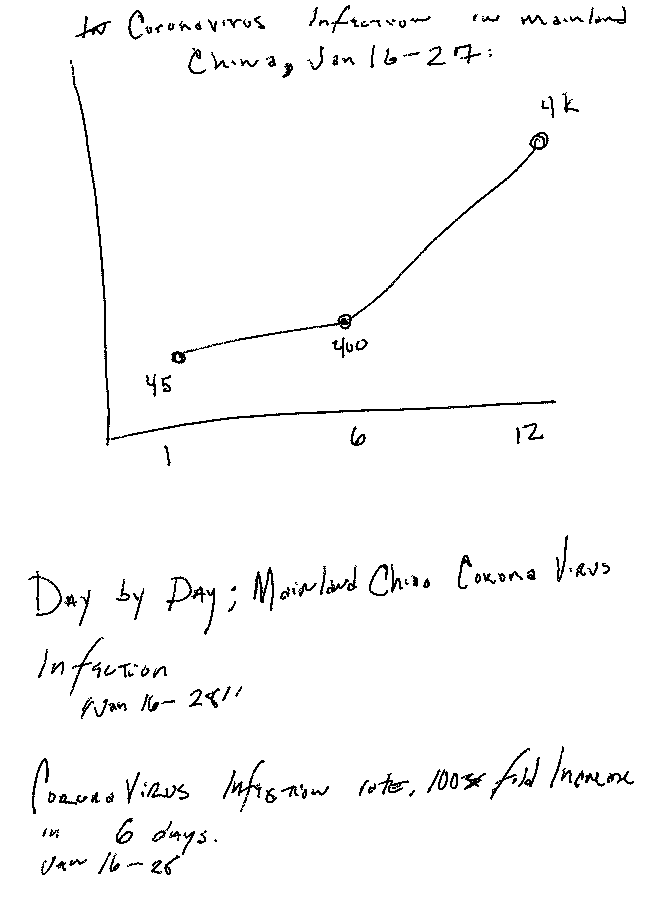 Coronavirus Infection in mainland
China, Jan 16-27:
4K
400
45
1 6 12
Day by Day; Mainland China Corona Virus
Infection
"Jan 16-28"
CoronaVirus Infection rate, fold Increase
in 6 days.
Jan 16-28